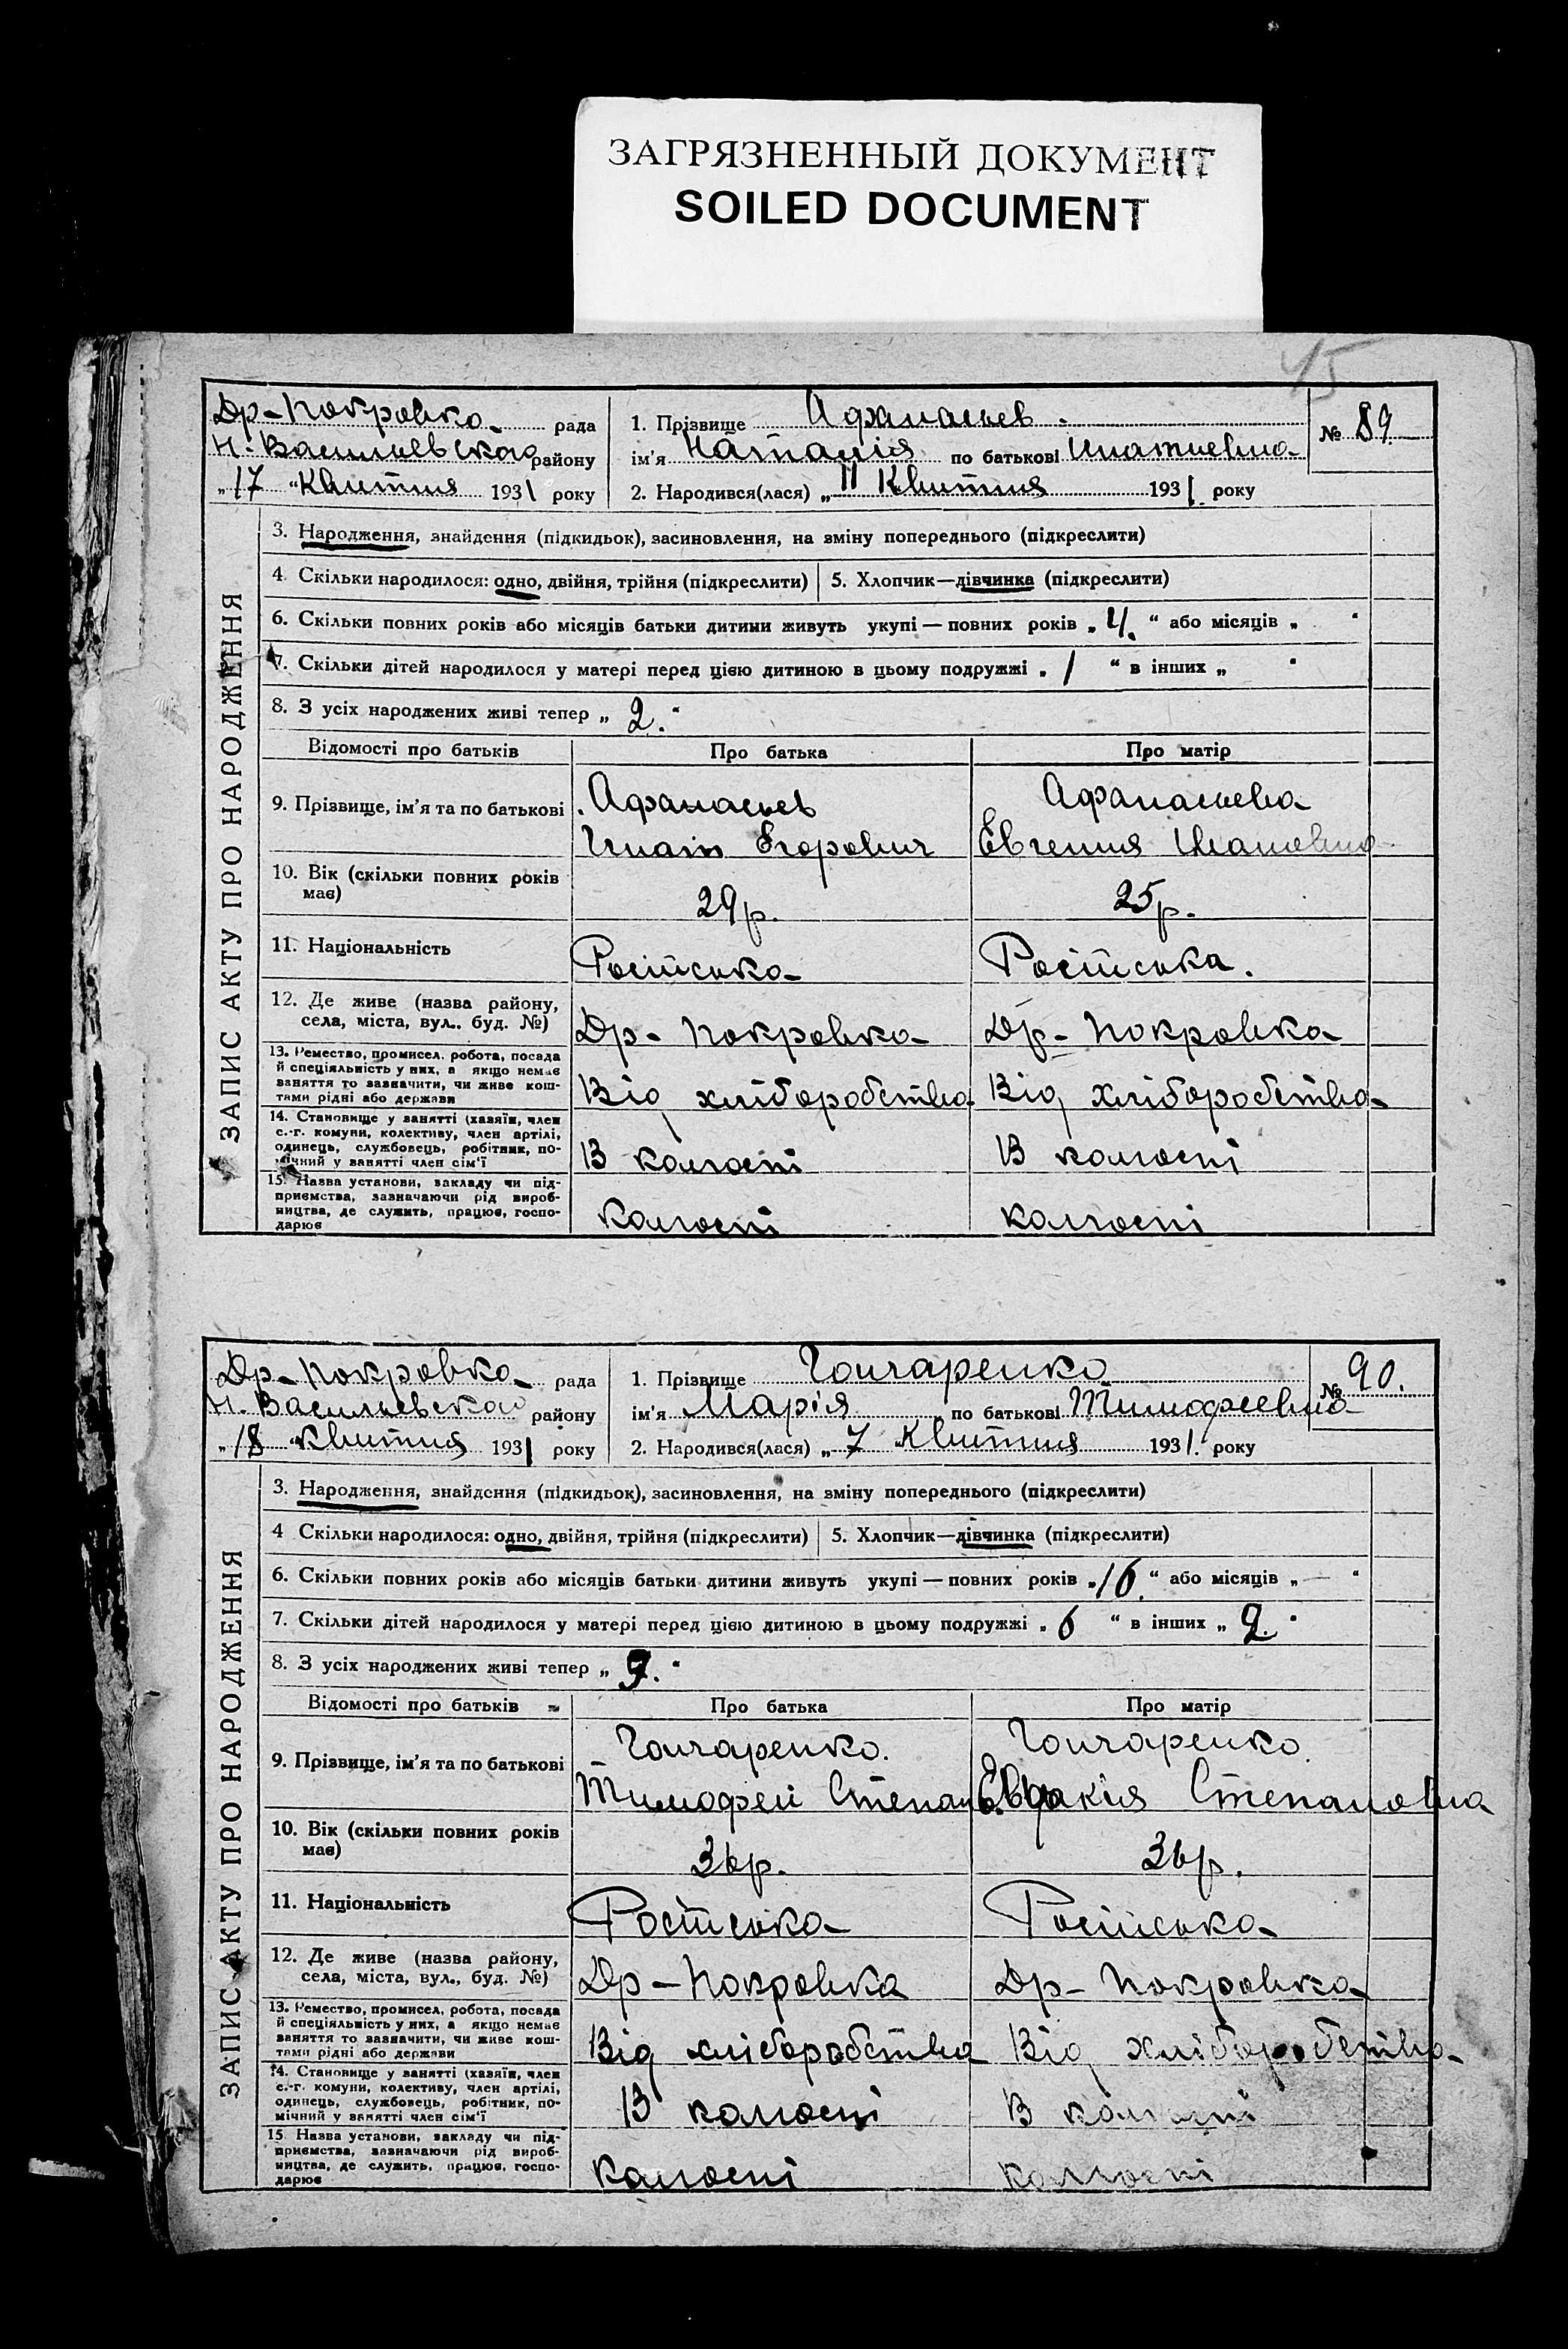 ЗАГРЯЗНЕННЫЙ ДОКУМЕНТ
SOILED DOCUMENT
45
Др-Покровка рада
Н. Васильевског району
„17 “ Квитня 1931 року
1. Прізвище Афанасьев
ім'я Наталія по батькові Игнатиевна
2. Народився(лася) „11 Квитня 1931. року
№ 89
ЗАПИС АКТУ ПРО НАРОДЖЕННЯ
3. Народження, знайдення (підкидьок), засиновлення, на зміну попереднього (підкреслити)
4 Скільки народилося: одно, двійня, трійня (підкреслити) 5. Хлопчик—дівчинка (підкреслити)
6. Скільки повних років або місяців батьки дитини живуть укупі — повних років „ 4. “ або місяців „ “
7. Скільки дітей народилося у матері перед цією дитиною в цьому подружжі „ 1 “ в інших „ “
8. З усіх народжених живі тепер „ 2. “
Відомості про батьків Про батька Про матір
9. Прізвище, ім'я та по батькові Афанасьев Афанасьева
Игнат Егорович Евгения Ивановна
10. Вік (скільки повних років має) 29 р. 25 р.
11. Національність Російська Російська.
12. Де живе (назва району, села, міста, вул., буд. №) Др- Покровка Др- Покровка
13. Ремество, промисел, робота, посада
й спеціяльність у них, а якщо немає
заняття то зазначити, чи живе кош-
тами рідні або держави
Від хліборобства Від хліборобства
14. Становище у занятті (хазяїн, член
с.-г. комуни, колективу, член артілі,
одинець, службовець, робітник, по-
мічний у занятті член сім'ї
В колгоспі В колгоспі
15. Назва установи, закладу чи під-
приємства, зазначаючи рід вироб-
ництва, де служить, працює, госпо-
дарює
колгоспі колгоспі
Др-Покровка рада
Н. Васильевског району
„18 “ Квитня 1931 року
1. Прізвище Гончаренко
ім'я Марія по батькові Тимофеевна
2. Народився(лася) „7 Квитня 1931. року
№ 90.
ЗАПИС АКТУ ПРО НАРОДЖЕННЯ
3. Народження, знайдення (підкидьок), засиновлення, на зміну попереднього (підкреслити)
4 Скільки народилося: одно, двійня, трійня (підкреслити) 5. Хлопчик—дівчинка (підкреслити)
6. Скільки повних років або місяців батьки дитини живуть укупі — повних років „16. “ або місяців „— “
7. Скільки дітей народилося у матері перед цією дитиною в цьому подружжі „ 6 “ в інших „ 2. “
8. З усіх народжених живі тепер „ 9. “
Відомості про батьків Про батька Про матір
9. Прізвище, ім'я та по батькові Гончаренко. Гончаренко.
Тимофей Степанов. Евдокия Степановна
10. Вік (скільки повних років має) 36 р. 36 р.
11. Національність Російська Російська
12. Де живе (назва району, села, міста, вул., буд. №) Др-Покровка Др- Покровка
13. Ремество, промисел, робота, посада
й спеціяльність у них, а якщо немає
заняття то зазначити, чи живе кош-
тами рідні або держави
Від хліборобства Від хліборобства
14. Становище у занятті (хазяїн, член
с.-г. комуни, колективу, член артілі,
одинець, службовець, робітник, по-
мічний у занятті член сім'ї
В колгоспі В колгоспі
15 Назва установи, закладу чи під-
приємства, зазначаючи рід вироб-
ництва, де служить, працює, госпо-
дарює
колгоспі колгоспі